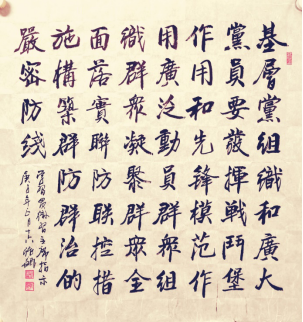 基層黨組織和廣大
黨員要發揮戰鬥堡
作用和先鋒模范作
用廣泛動員群眾組
織群眾凝聚群眾全
面落實聯防聯控措
施構築群防群治的
嚴密防线
學習貫徹習主席指示
庚子年正月